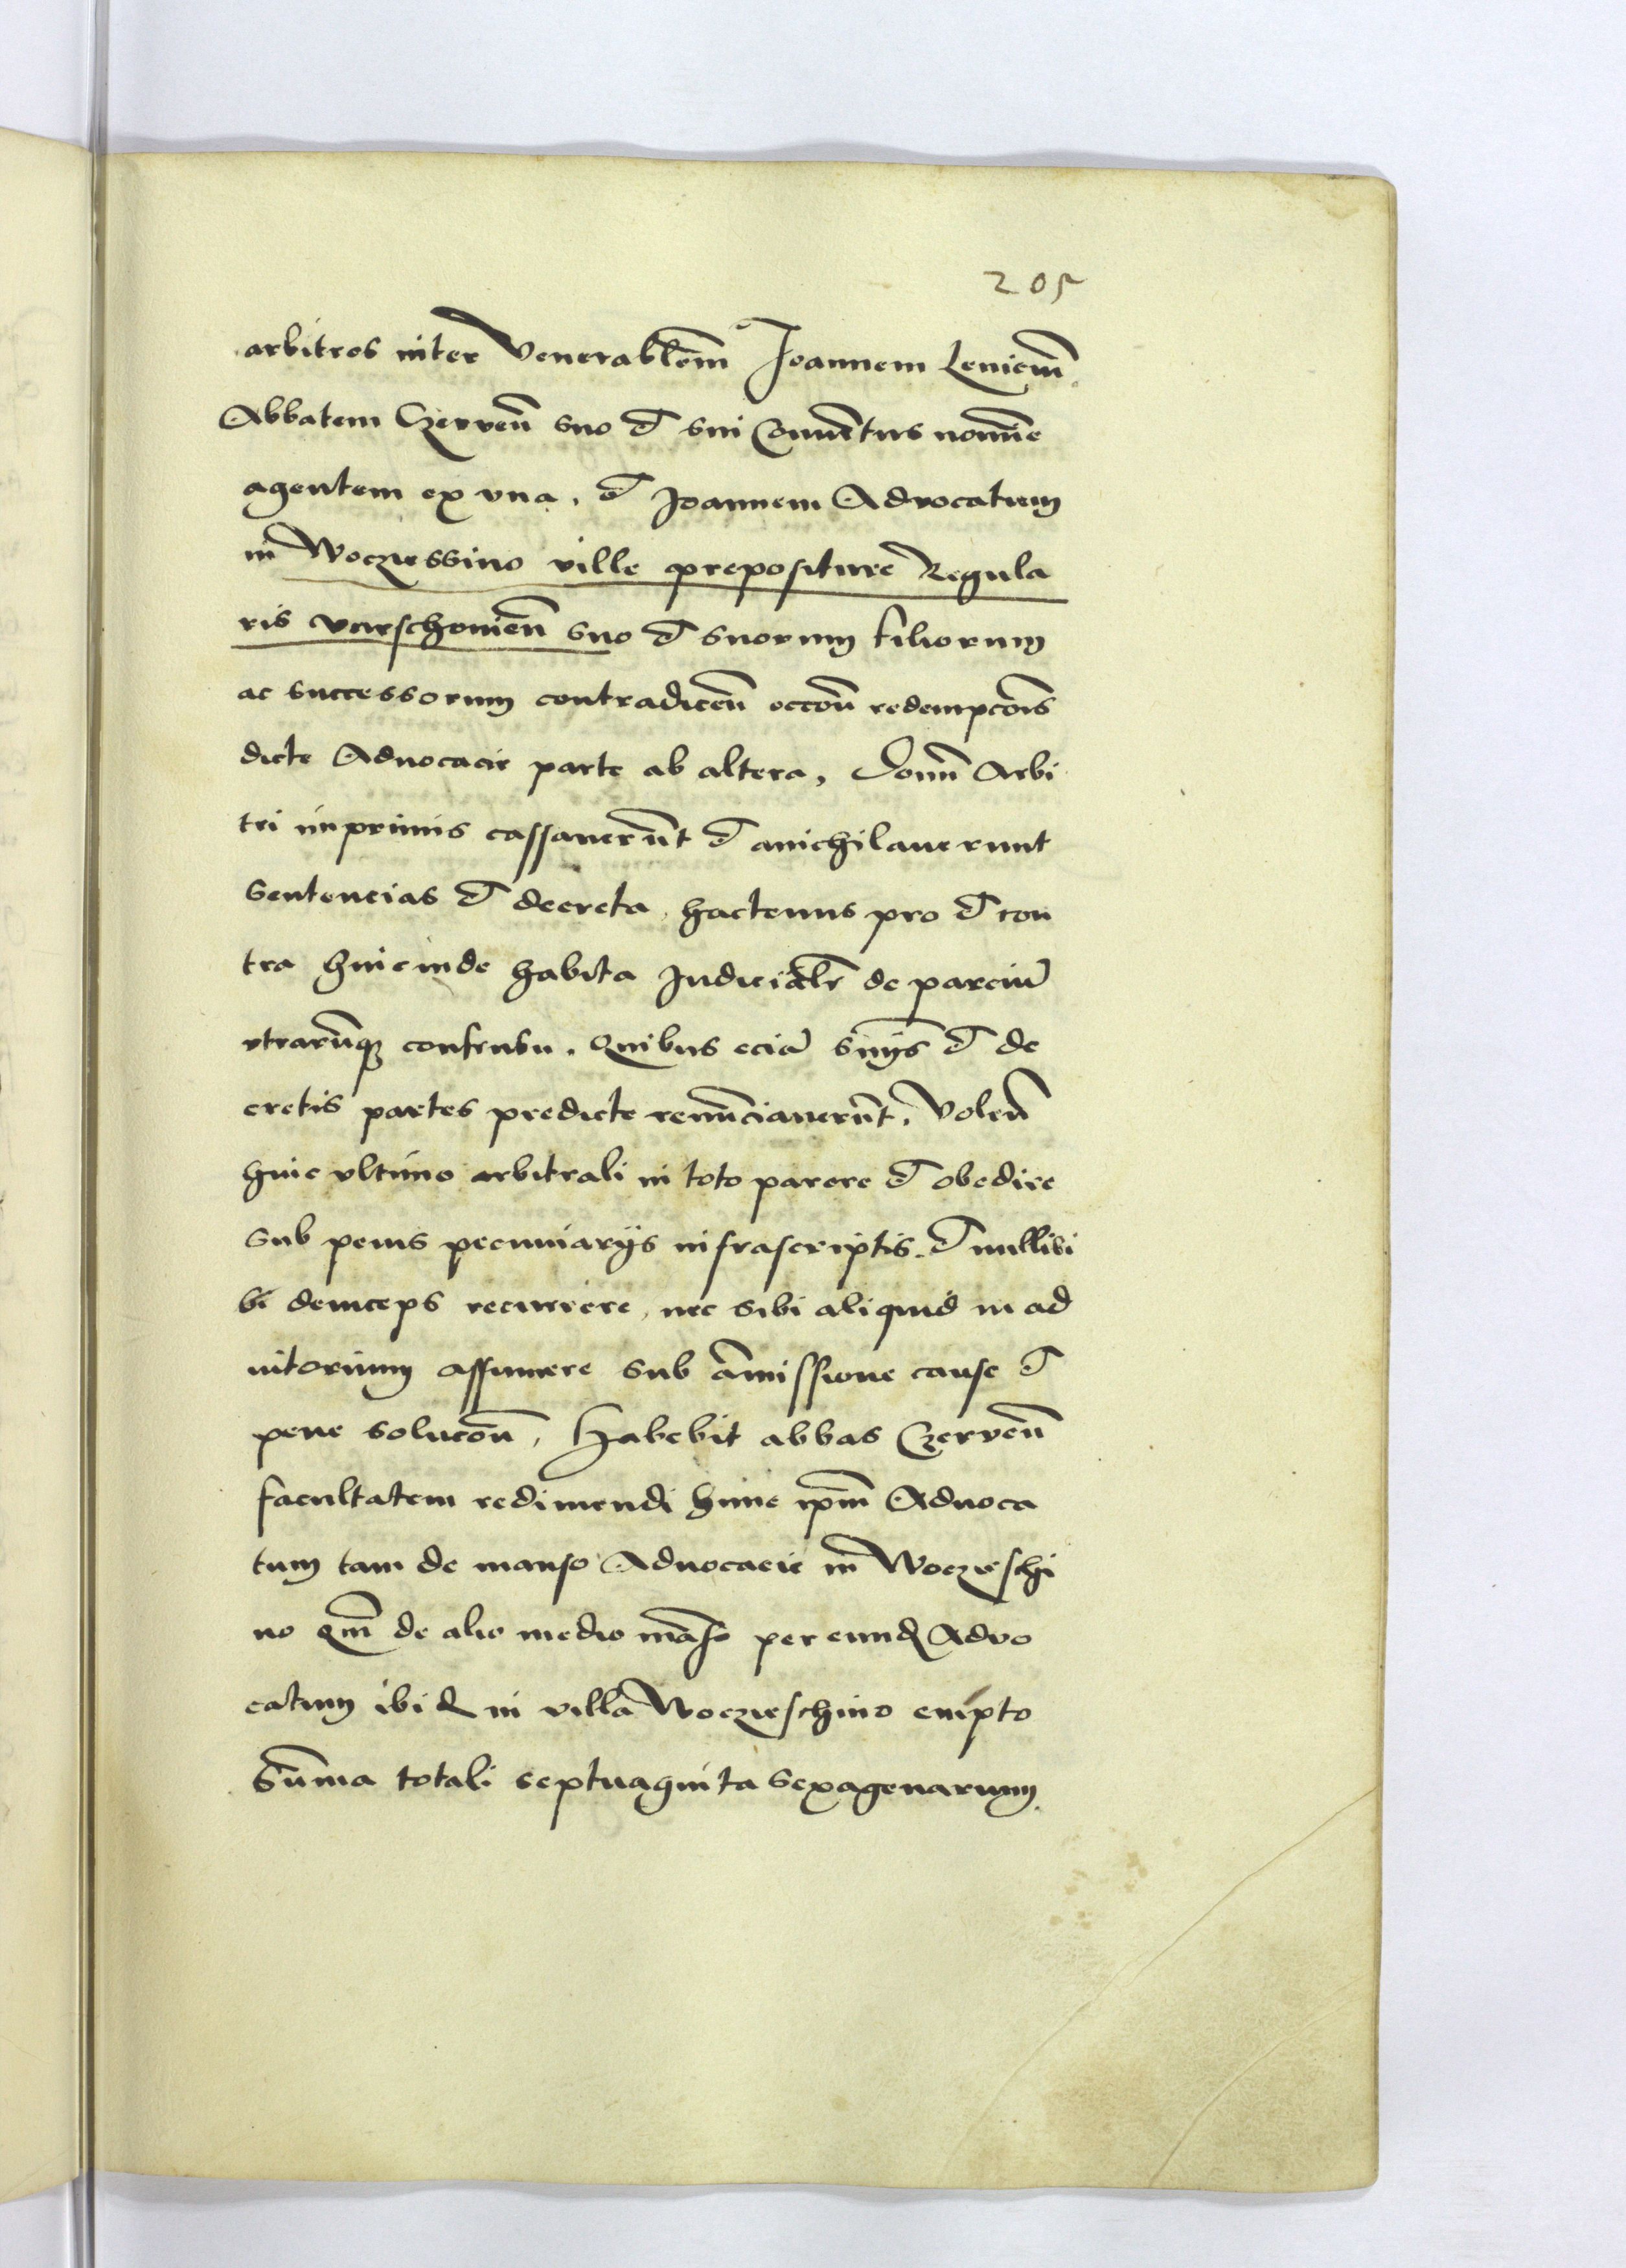 205
arbitros inter Venerablem̄ Joannem Leniem̄
Abbatem Czerven̄ suo et sui Conuētus nomīe
agentem ex vna, et Joannem Advocatum
in Wocziessino ville prepositure Regula
ris vneschouien̄ suo et suorum filiorum
ac successorum contradicen̄ occōn̄ redempcōis
dicte Aduocacie parte ab altera, Domn̄ Arbi
tri inprimis cassauerūt et anichilauerunt
sentencias et decreta hactenus pro et con
tra hincinde habita Judicialr̄ de parciū
vtrarūq̨ consensu. Quibus eciā sn̄ijs et de
cretis partes predicte renūciauerūt, Volen̄
huic vltimo arbitrali in toto parere et obedire
sub penis pecuniarijs infrascriptis. et nullibi
bi deinceps recurrere, nec sibi aliquid in ad
iutorium assumere sub āmissione cause et
pene solucōn̄, Habebit abbas Czerven̄
facultatem redimendi hunc ip̄m Aduoca
tum tam de manso Aduocacie in Woczieschi
no qm̄ de alio medio māso per eund̨ Advo
catum ibid̨ in villa Woczieschino empto
Sūma totali septuaginta sexagenarum